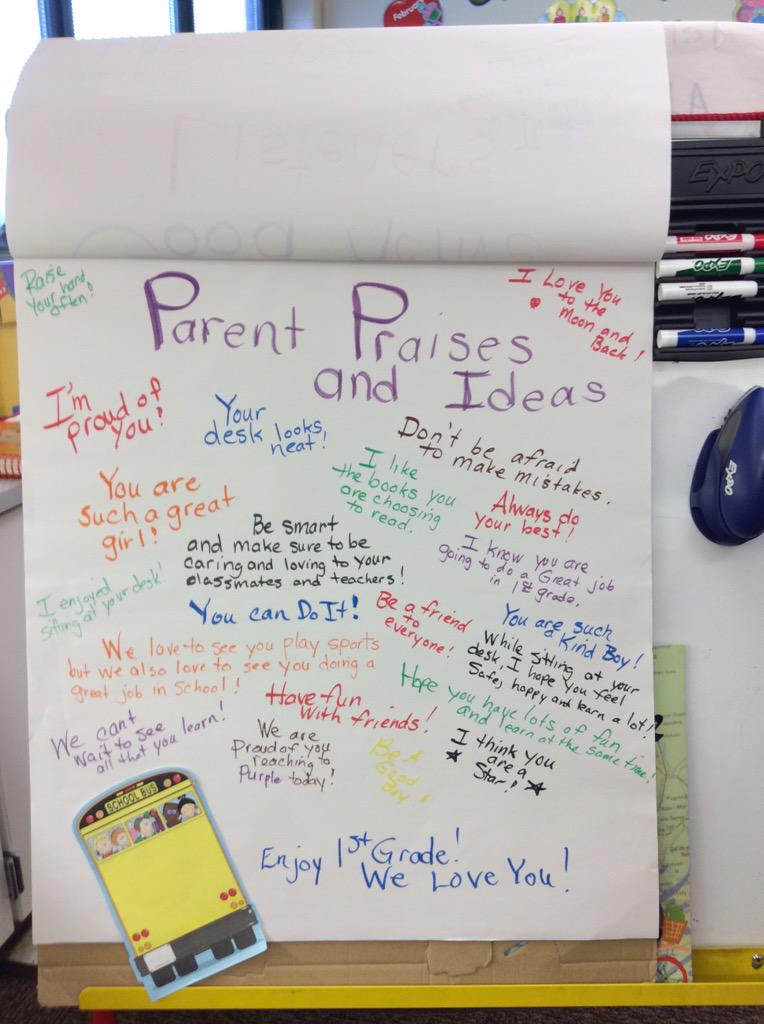 February
EXPO
EXPO
EXPO
EXPO
Raise
Your hand
often!
Parent Praises
and Ideas
I Love You
to the
Moon and
Back!
I'm
proud of
you!
Your
desk looks
neat!
Don't be afraid
to make mistakes.
I like
the books you
are choosing
to read.
You are
such a great
girl!
Always do
your best!
Be smart
and make sure to be
caring and loving to your
classmates and teachers!
I know you are
going to do a Great job
in 1st grade.
I enjoyed
sitting at your desk!
You can Do It!
Be a friend
to
everyone!
You are such
a Kind Boy!
We love to see you play sports
but we also love to see you doing a
great job in School!
While sitting at your
desk, I hope you feel
Safe, happy and learn a lot!
Have fun
with friends!
Hope you have lots of fun
and learn at the same time!
We can't
wait to see
all that you learn!
We are
Proud of you
reaching to
Purple today!
Be A
Good
Boy!
I think you
are a
Star!
SCHOOL BUS
Enjoy 1st Grade!
We Love You!